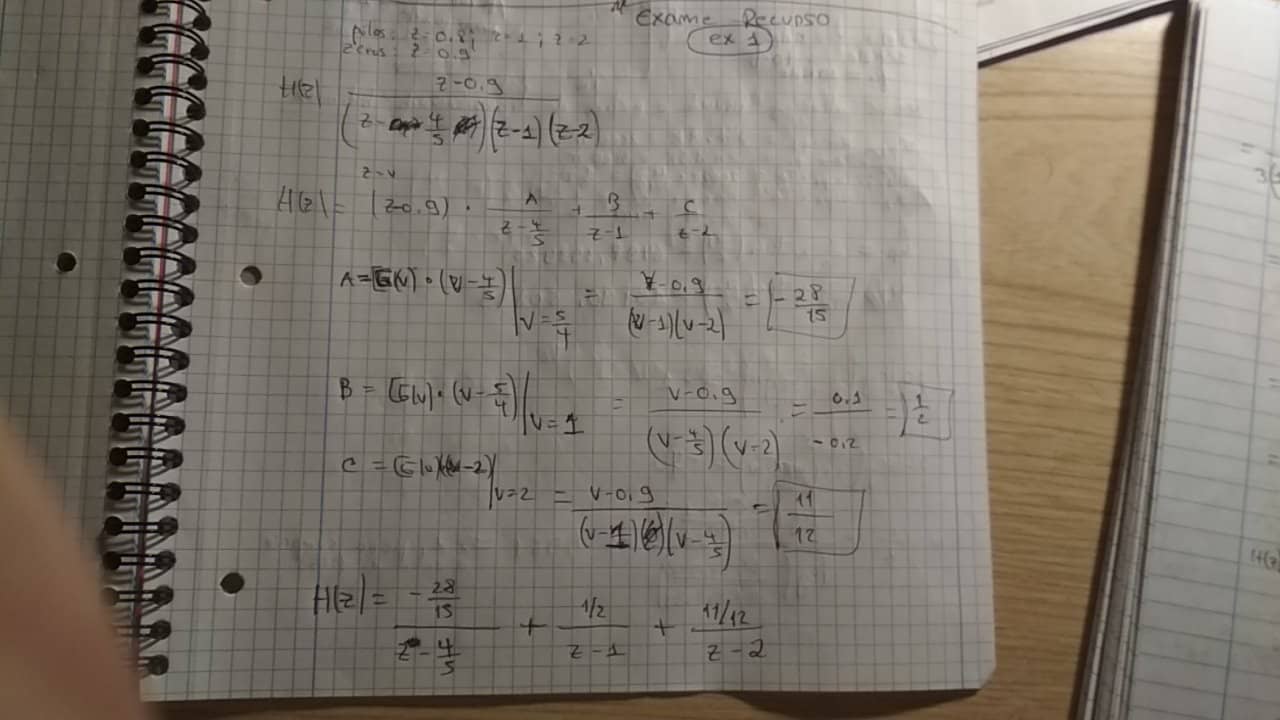 Exame Recurso
ex 1
polos: z=0.8; z=1; z=2
zeros: z=0.9
H(z) z-0.9 / (z-4/5)(z-1)(z-2)
z=v
H(z)= (z-0.9) · A/(z-4/5) + B/(z-1) + C/(z-2)
A=G(v)·(v-4/5)|v=5/4 = v-0.9/(v-1)(v-2) = -28/15
B = G(v)·(v-5/4)|v=1 = v-0.9/(v-4/5)(v-2) = 0.1/-0.2 = 1/2
C = G(v)(v-2)|v=2 = v-0.9/(v-1)(v-4/5) = 11/12
H(z)= -28/15/(z-4/5) + 1/2/(z-1) + 11/12/(z-2)